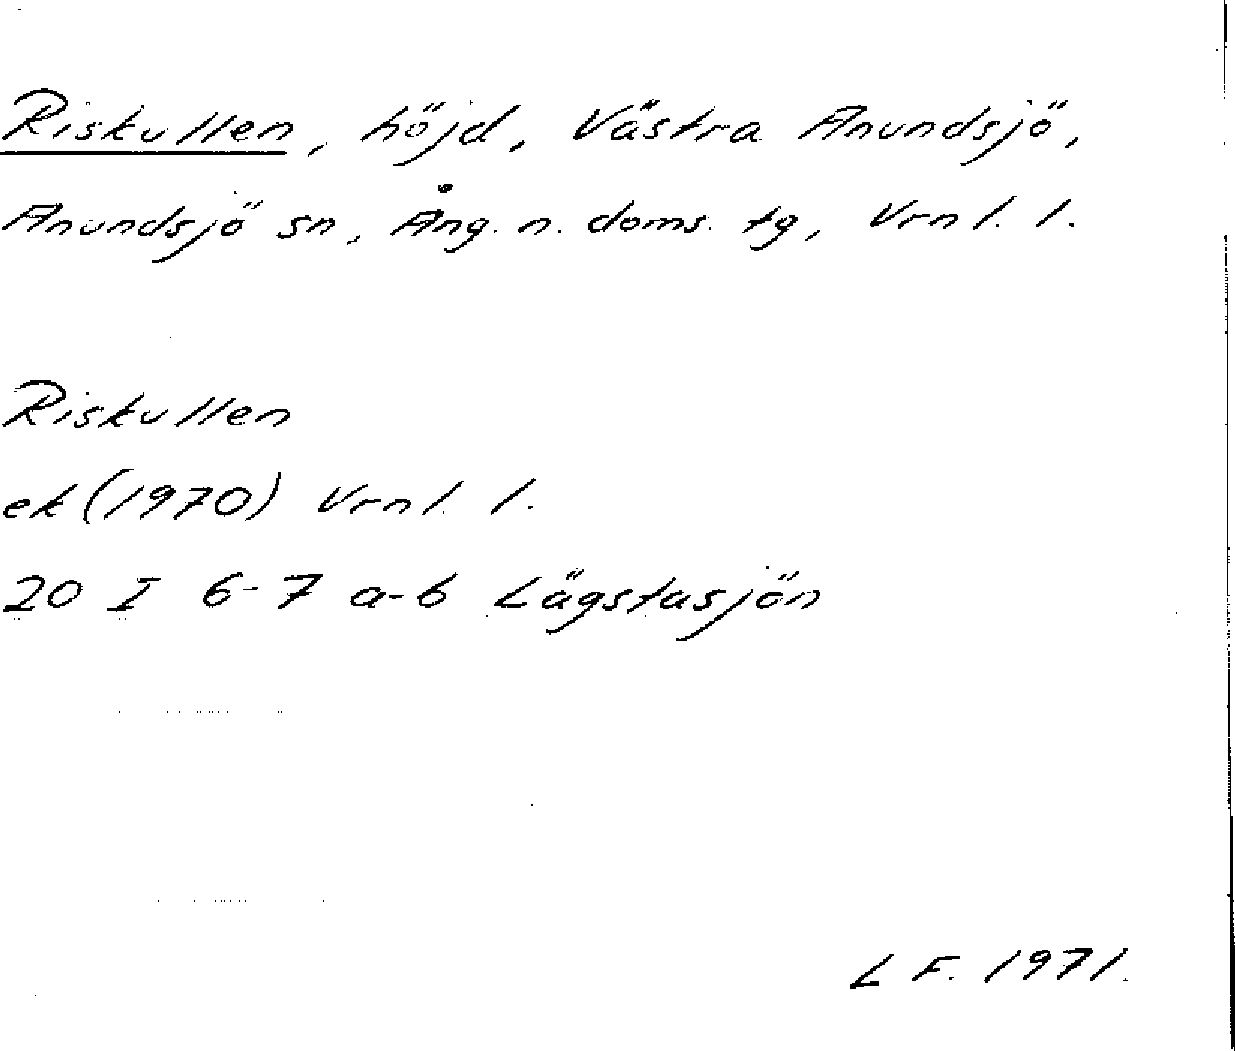 Riskullen, höjd, Västra Anundsjö,
Anundsjö sn, Ång. n. doms. tg, Vrnl. l.
Riskullen
ek (1970) Vrnl. l.
20 I 6-7 a-b Lägstasjön
L F. 1971.